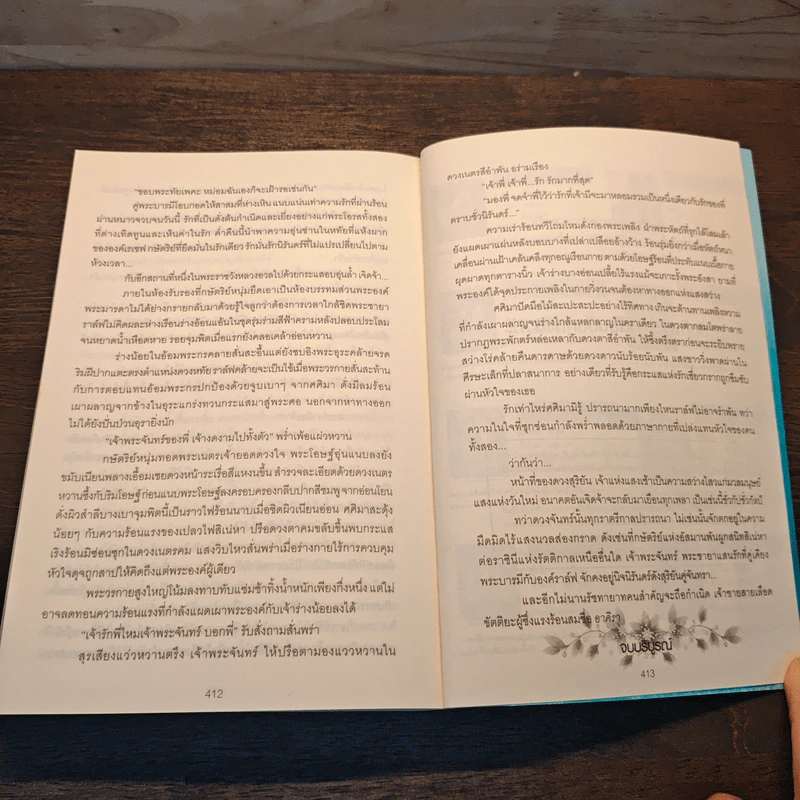 "ขอบพระทัยเพคะ หม่อมฉันเองก็จะเฝ้ารอเช่นกัน"
คู่พระบารมีโอบกอดให้สาสมที่ห่างเหิน แนบแน่นเท่าความรักที่ผ่านร้อน
ผ่านหนาวจวบจนวันนี้ รักที่เป็นดั่งต้นกำเนิดและเยี่ยงอย่างแก่พระโอรสทั้งสอง
ที่ต่างเทิดทูนและเห็นค่าในรัก ค่ำคืนนี้นำพาความอบอุ่นซ่านในหทัยที่แฟงผาก
ขององค์เรเซฟ กษัตริย์ที่ยึดมั่นในรักเดียว รักมั่นรักนิรันดร์ที่ไม่แปรเปลี่ยนไปตาม
ห้วงเวลา...
กับอีกสถานที่หนึ่งในพระราชวังหลวงอวลไปด้วยกระแสอบอุ่นล้ำ เจิดจ้า...
ภายในห้องรับรองที่กษัตริย์หนุ่มยึดเอาเป็นห้องบรรทมส่วนพระองค์
พระมารดาไม่ได้ห่างกรายกลับมาด้วยรู้ใจลูกว่าต้องการเวลาใกล้ชิดพระชายา
ราล์ฟไม่คิดผละห่างเรือนร่างอ้อนแอ้นในชุดรุ่มร่ามสีฟ้าครามหลังปลอบประโลม
จนหยาดน้ำเหือดหาย รอยจุมพิตเมื่อแรกยังคลอเคล้าอ่อนหวาน
ร่างน้อยในอ้อมพระกรคลายสั่นสะอื้นแต่ยังซบอิงพระอุระคล้ายจรด
ริมฝีปากแตะตรงตำแหน่งดวงหทัย ราล์ฟคล้ายจะเป็นไข้เมื่อพระวรกายสั่นสะท้าน
กับการตอบแทนอ้อมพระกรปกป้องด้วยจูบเบาๆ จากศศิมา ดั่งมีลมร้อน
เผาผลาญจากข้างในอุระแกร่งทวนกระแสมาสู่พระศอ นอกจากหาทางออก
ไม่ได้ยังปั่นป่วนอุรายิ่งนัก
"เจ้าพระจันทร์ของพี่ เจ้างดงามไปทั้งตัว" พร่ำเพ้อแผ่วหวาน
กษัตริย์หนุ่มทอดพระเนตรเจ้ายอดดวงใจ พระโอษฐ์อุ่นแนบลงยัง
ขมับเนียนพลางเอื้อมเชยดวงหน้าระเรื่อสีแหงนขึ้น สำรวจละเอียดด้วยดวงเนตร
หวานซึ้งกับริมโอษฐ์ ก่อนแนบพระโอษฐ์ลงครอบครองกลีบปากสีชมพู จากอ่อนโยน
ดั่งผิวสำลีบางเบาจุมพิตนี้เป็นราวไฟร้อนนาบเมื่อชิดผิวเนียนอ่อน ศศิมาสะดุ้ง
น้อยๆ กับความร้อนแรงของเปลวไฟสิเน่หา ปรือดวงตาคมขลับขึ้นพบกระแส
เริงร้อนมิซ่อนซุกในดวงเนตรคม แสงวิบไหวสั่นพร่าเมื่อร่างกายไร้การควบคุม
หัวใจดุจถูกสาปให้คิดถึงแต่พระองค์ผู้เดียว
พระวรกายสูงใหญ่โน้มลงทาบทับแช่มช้าทิ้งน้ำหนักเพียงกึ่งหนึ่ง แต่ไม่
อาจลดทอนความร้อนแรงที่กำลังแผดเผาพระองค์กับเจ้าร่างน้อยลงได้
"เจ้ารักพี่ไหมเจ้าพระจันทร์ บอกพี่" รับสั่งถามสั่นพร่า
สุรเสียงแว่วหวานตรึง เจ้าพระจันทร์ ให้ปรือตามองแววหวานใน
412
ดวงเนตรสีอำพัน อร่ามเรือง
"เจ้าพี่ เจ้าพี่...รัก รักมากที่สุด"
"มองพี่ จดจำพี่ไว้ว่ารักที่เจ้ามีจะมาหลอมรวมเป็นหนึ่งเดียวกับรักของพี่
ตราบชั่วนิรันดร์..."
ความเร่าร้อนทวีโถมโหมดั่งกองพระเพลิง ฝ่าพระหัตถ์ที่รุกไล้โลมเล้า
ยังแผดเผาแผ่นหลังบอบบางที่เปล่าเปลือยอ้างว้าง ร้อนรุ่มยิ่งกว่าเมื่อหัตถ์หนา
เคลื่อนผ่านเฝ้าเคล้นคลึงทุกอณูเรือนกาย ตามด้วยโอษฐ์ร้อนที่ประทับแนบเนื้อกาย
ผุดผาดทุกตารางนิ้ว เจ้าร่างบางอ่อนเปลี้ยไร้แรงแม้จะเกาะรั้งพระอังสา ยามที่
พระองค์ได้จุดประกายเพลิงในกายวิงวอนจนต้องหาทางออกแห่งแสงสว่าง
ศศิมาปัดมือไม้สะเปะสะปะอย่างไร้ทิศทาง เกินจะต้านทานเพลิงหวาน
ที่กำลังเผาผลาญจนร่างใกล้แหลกลาญในคราเดียว ในดวงตากลมโตพร่าลาย
ปรากฏพระพักตร์หล่อเหลากับดวงตาสีอำพัน ให้ซึ้งตรึงตราก่อนจะระยิบพราย
สว่างโร่คล้ายคืนดารดาษด้วยดวงดาวนับร้อยนับพัน แสงขาววิ่งพาดผ่านใน
ศีรษะเล็กที่ปลาสนาการ อย่างเดียวที่รับรู้คือกระแสแห่งรักเชี่ยวกรากถูกซึมซับ
ผ่านหัวใจของเธอ
รักเท่าไหร่ศศิมามิรู้ ปรารถนามากเพียงไหนราล์ฟไม่อาจรำพัน ทว่า
ความในใจที่ซุกซ่อนกำลังพร่ำพลอดด้วยภาษากายที่เปล่งแทนหัวใจของคน
ทั้งสอง...
ว่ากันว่า...
หน้าที่ของดวงสุริยัน เจ้าแห่งแสงเช้าเป็นความสว่างไสวแก่มวลมนุษย์
แสงแห่งวันใหม่ อนาคตอันเจิดจ้าจะกลับมาเยือนทุกเพลา เป็นเช่นนี้ชั่วกัปชั่วกัลป์
ทว่าดวงจันทร์นั้นทุกราตรีกาลปรารถนา ไม่เช่นนั้นจักตกอยู่ในความ
มืดมิดไร้แสงนวลสองกราด ดังเช่นที่กษัตริย์แห่งอัสมานพันผูกสนิทสิเน่หา
ต่อราชินีแห่งรัตติกาลเหนืออื่นใด เจ้าพระจันทร์ พระชายาแสนรักที่คู่เคียง
พระบารมีกับองค์ราล์ฟ จักคงอยู่นิจนิรันดร์ดั่งสุริยันคู่จันทรา...
และอีกไม่นานรัชทายาทคนสำคัญจะถือกำเนิด เจ้าชายสายเลือด
ขัตติยะผู้ซึ่งแรงร้อนสมชื่อ อาคิรา
จบบริบูรณ์
413